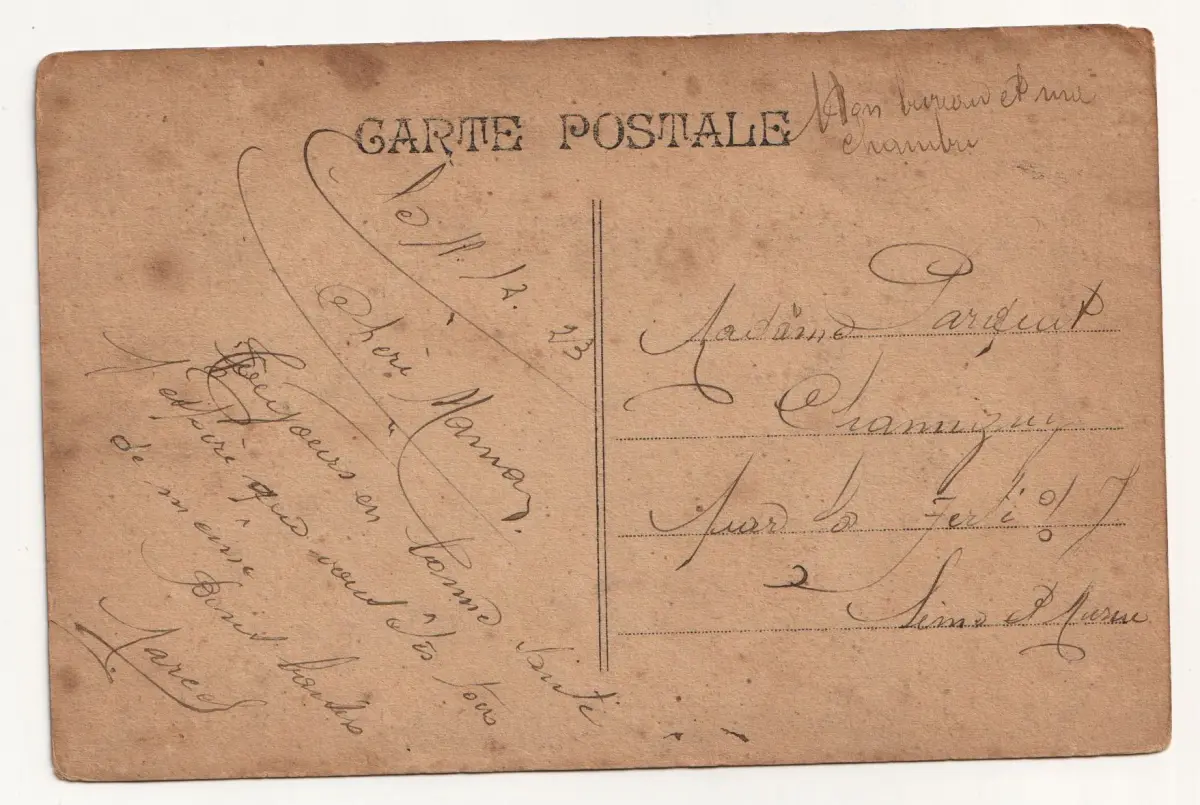 CARTE POSTALE
Mon bureau et ma
chambre
Le 11. 12. 23
Chère Maman.
Toujours en bonne santé
J espère que vous êtes tous
de même
Marcel
Madame Parquet
Chamigny
par la Ferté
Seine et Marne